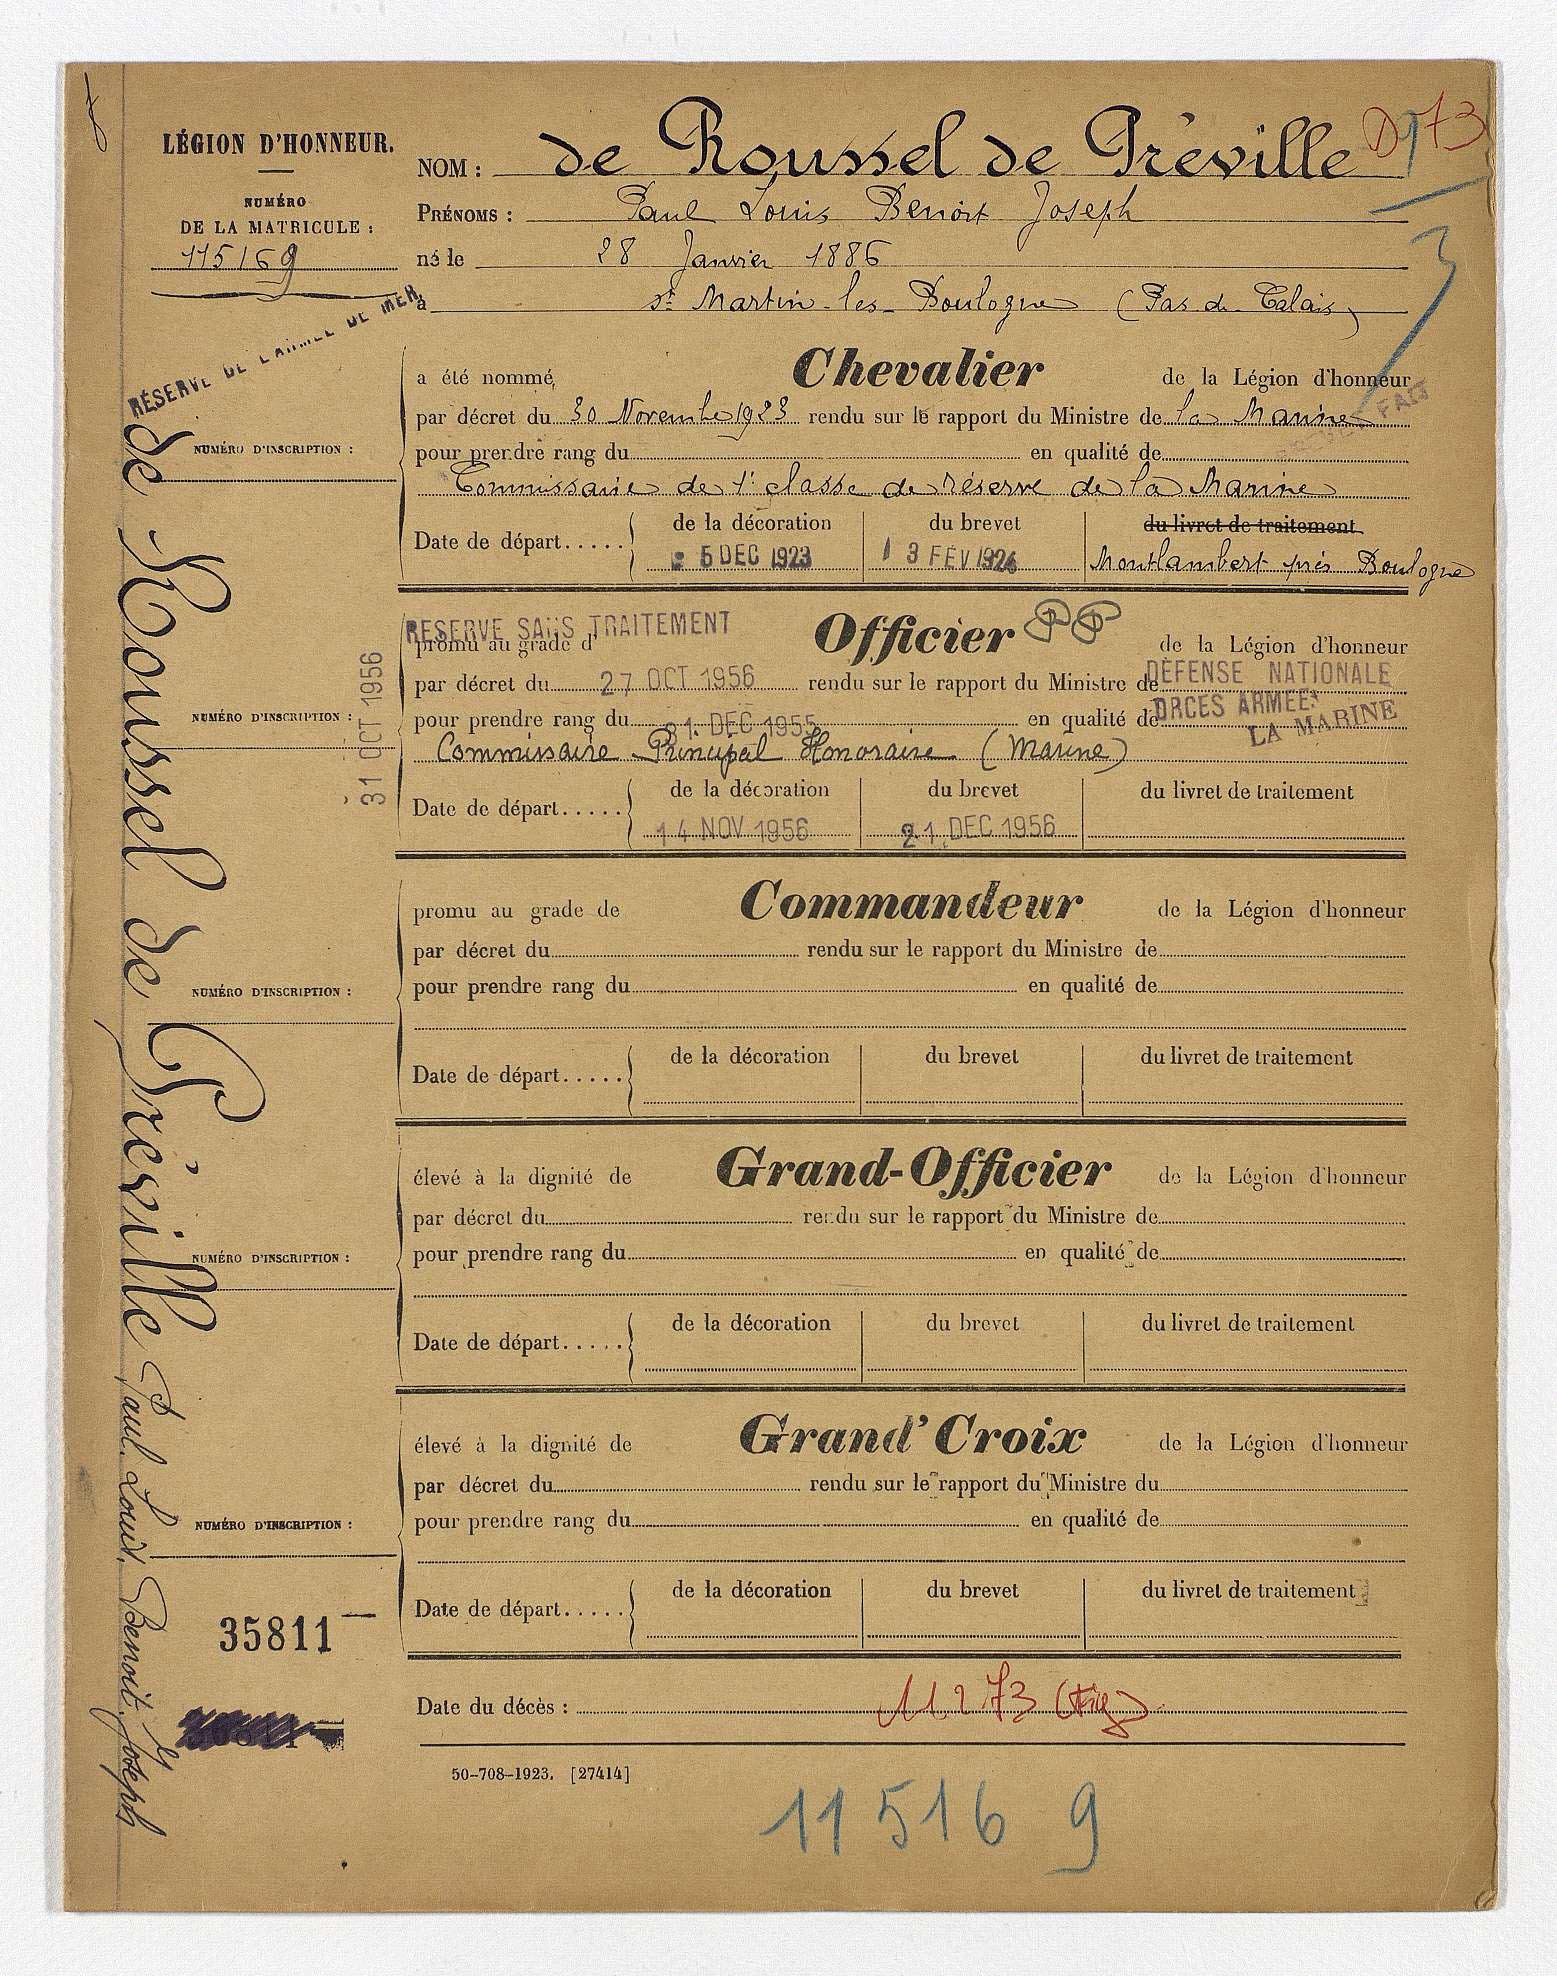 LÉGION D'HONNEUR.
NUMÉRO
DE LA MATRICULE :
115169
D 73
NOM : de Roussel de Préville
PRÉNOMS : Paul Louis Benoit Joseph
né le 28 Janvier 1886
à St Martin-les-Boulogne (Pas de Calais)
RÉSERVE DE L'ARMÉE DE MER
a été nommé Chevalier de la Légion d'honneur
par décret du 30 Novembre 1923 rendu sur le rapport du Ministre de la Marine
FAIT
NUMÉRO D'INSCRIPTION :
pour prendre rang du en qualité de
Commissaire de 1e classe de réserve de la Marine
Date de départ..... de la décoration du brevet du livret de traitement
5 DEC 1923 13 FEV 1924 Montlambert près Boulogne
RESERVE SANS TRAITEMENT
promu au grade d' Officier PP de la Légion d'honneur
par décret du 27 OCT 1956 rendu sur le rapport du Ministre de DÉFENSE NATIONALE
31 OCT 1956
NUMÉRO D'INSCRIPTION :
pour prendre rang du 31 DEC 1955 en qualité de
ORCES ARMEES
LA MARINE
Commissaire Principal Honoraire (Marine)
Date de départ..... de la décoration du brevet du livret de traitement
14 NOV 1956 21 DEC 1956
promu au grade de Commandeur de la Légion d'honneur
par décret du rendu sur le rapport du Ministre de
NUMÉRO D'INSCRIPTION :
pour prendre rang du en qualité de
Date de départ..... de la décoration du brevet du livret de traitement
élevé à la dignité de Grand-Officier de la Légion d'honneur
par décret du rendu sur le rapport du Ministre de
NUMÉRO D'INSCRIPTION :
pour prendre rang du en qualité de
Date de départ..... de la décoration du brevet du livret de traitement
élevé à la dignité de Grand'Croix de la Légion d'honneur
par décret du rendu sur le rapport du Ministre du
NUMÉRO D'INSCRIPTION :
pour prendre rang du en qualité de
Date de départ..... de la décoration du brevet du livret de traitement
35811
Date du décès : 11 2 73
50-708-1923. [27414]
11516 9
de Roussel de Préville Paul. Louis. Benoit. Joseph